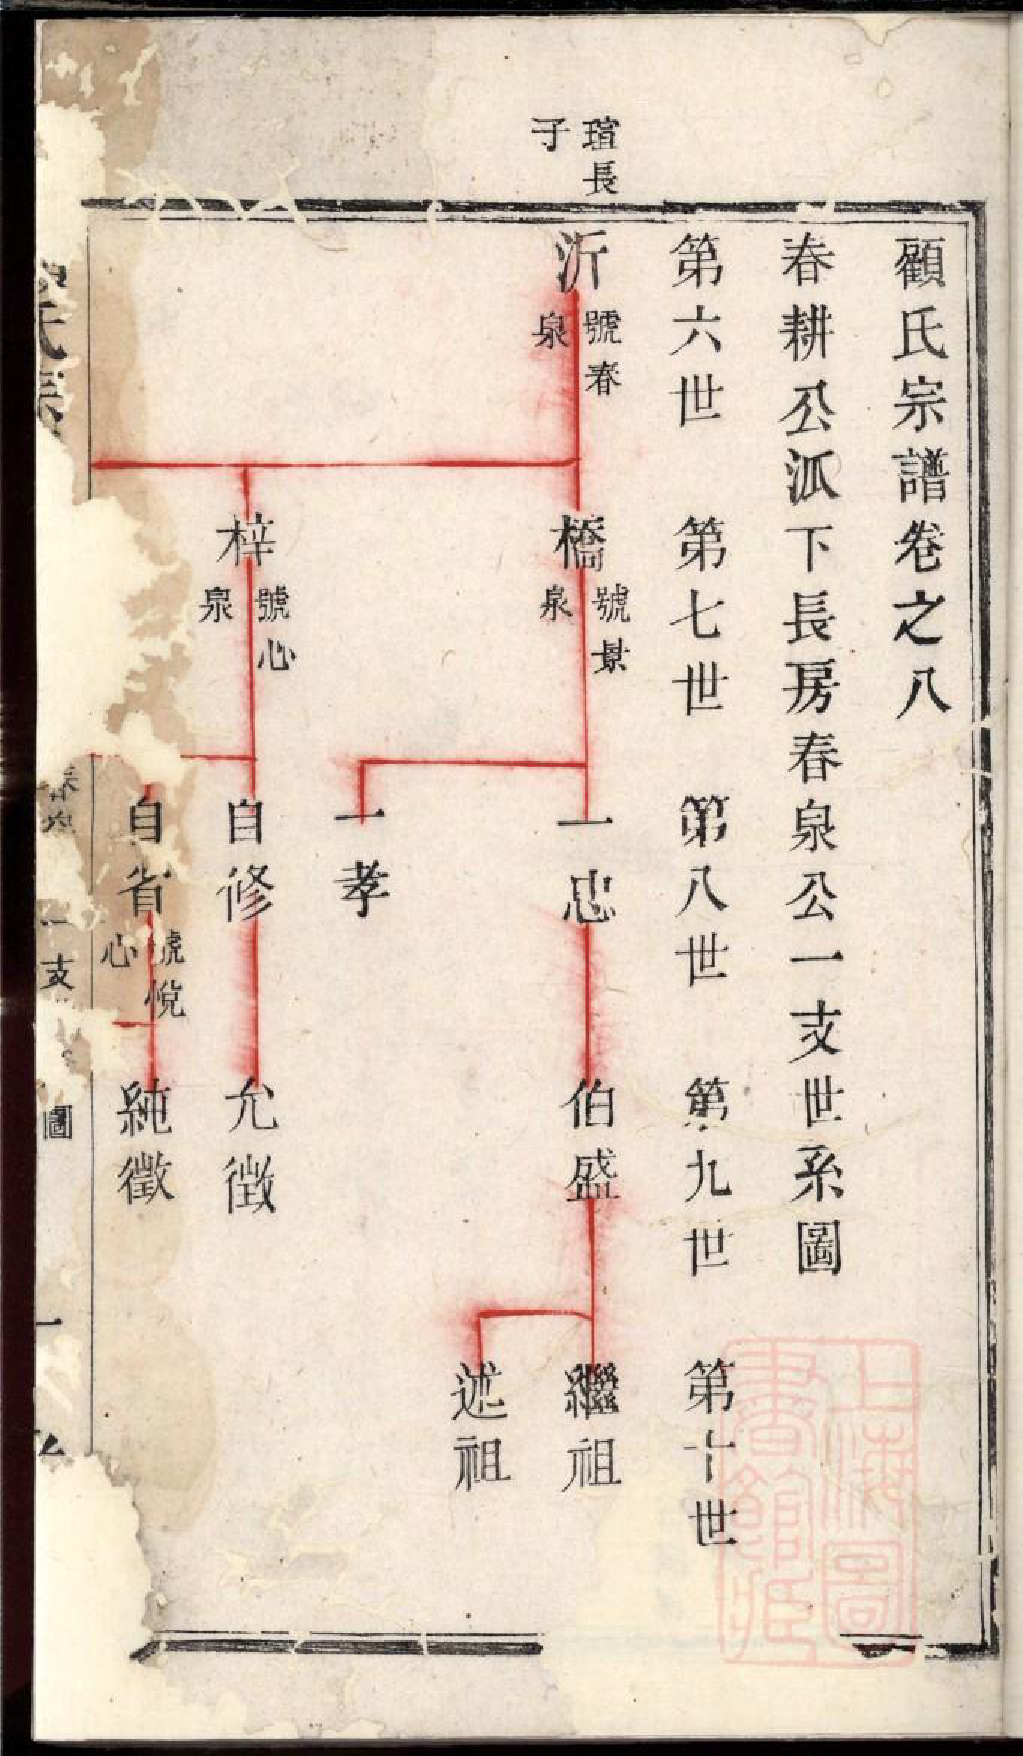 顧氏宗譜卷之八
春耕公派下長房春泉公一支世系圖
第六世　第七世　第八世　第九世　第十世
瑄長子
沂
號春泉
橋
號景泉
一忠
伯盛
繼祖
述祖
一孝
梓
號心泉
自修
允徵
自省
號悅心
純徵
氏宗
一支
圖
一
上海圖書館藏